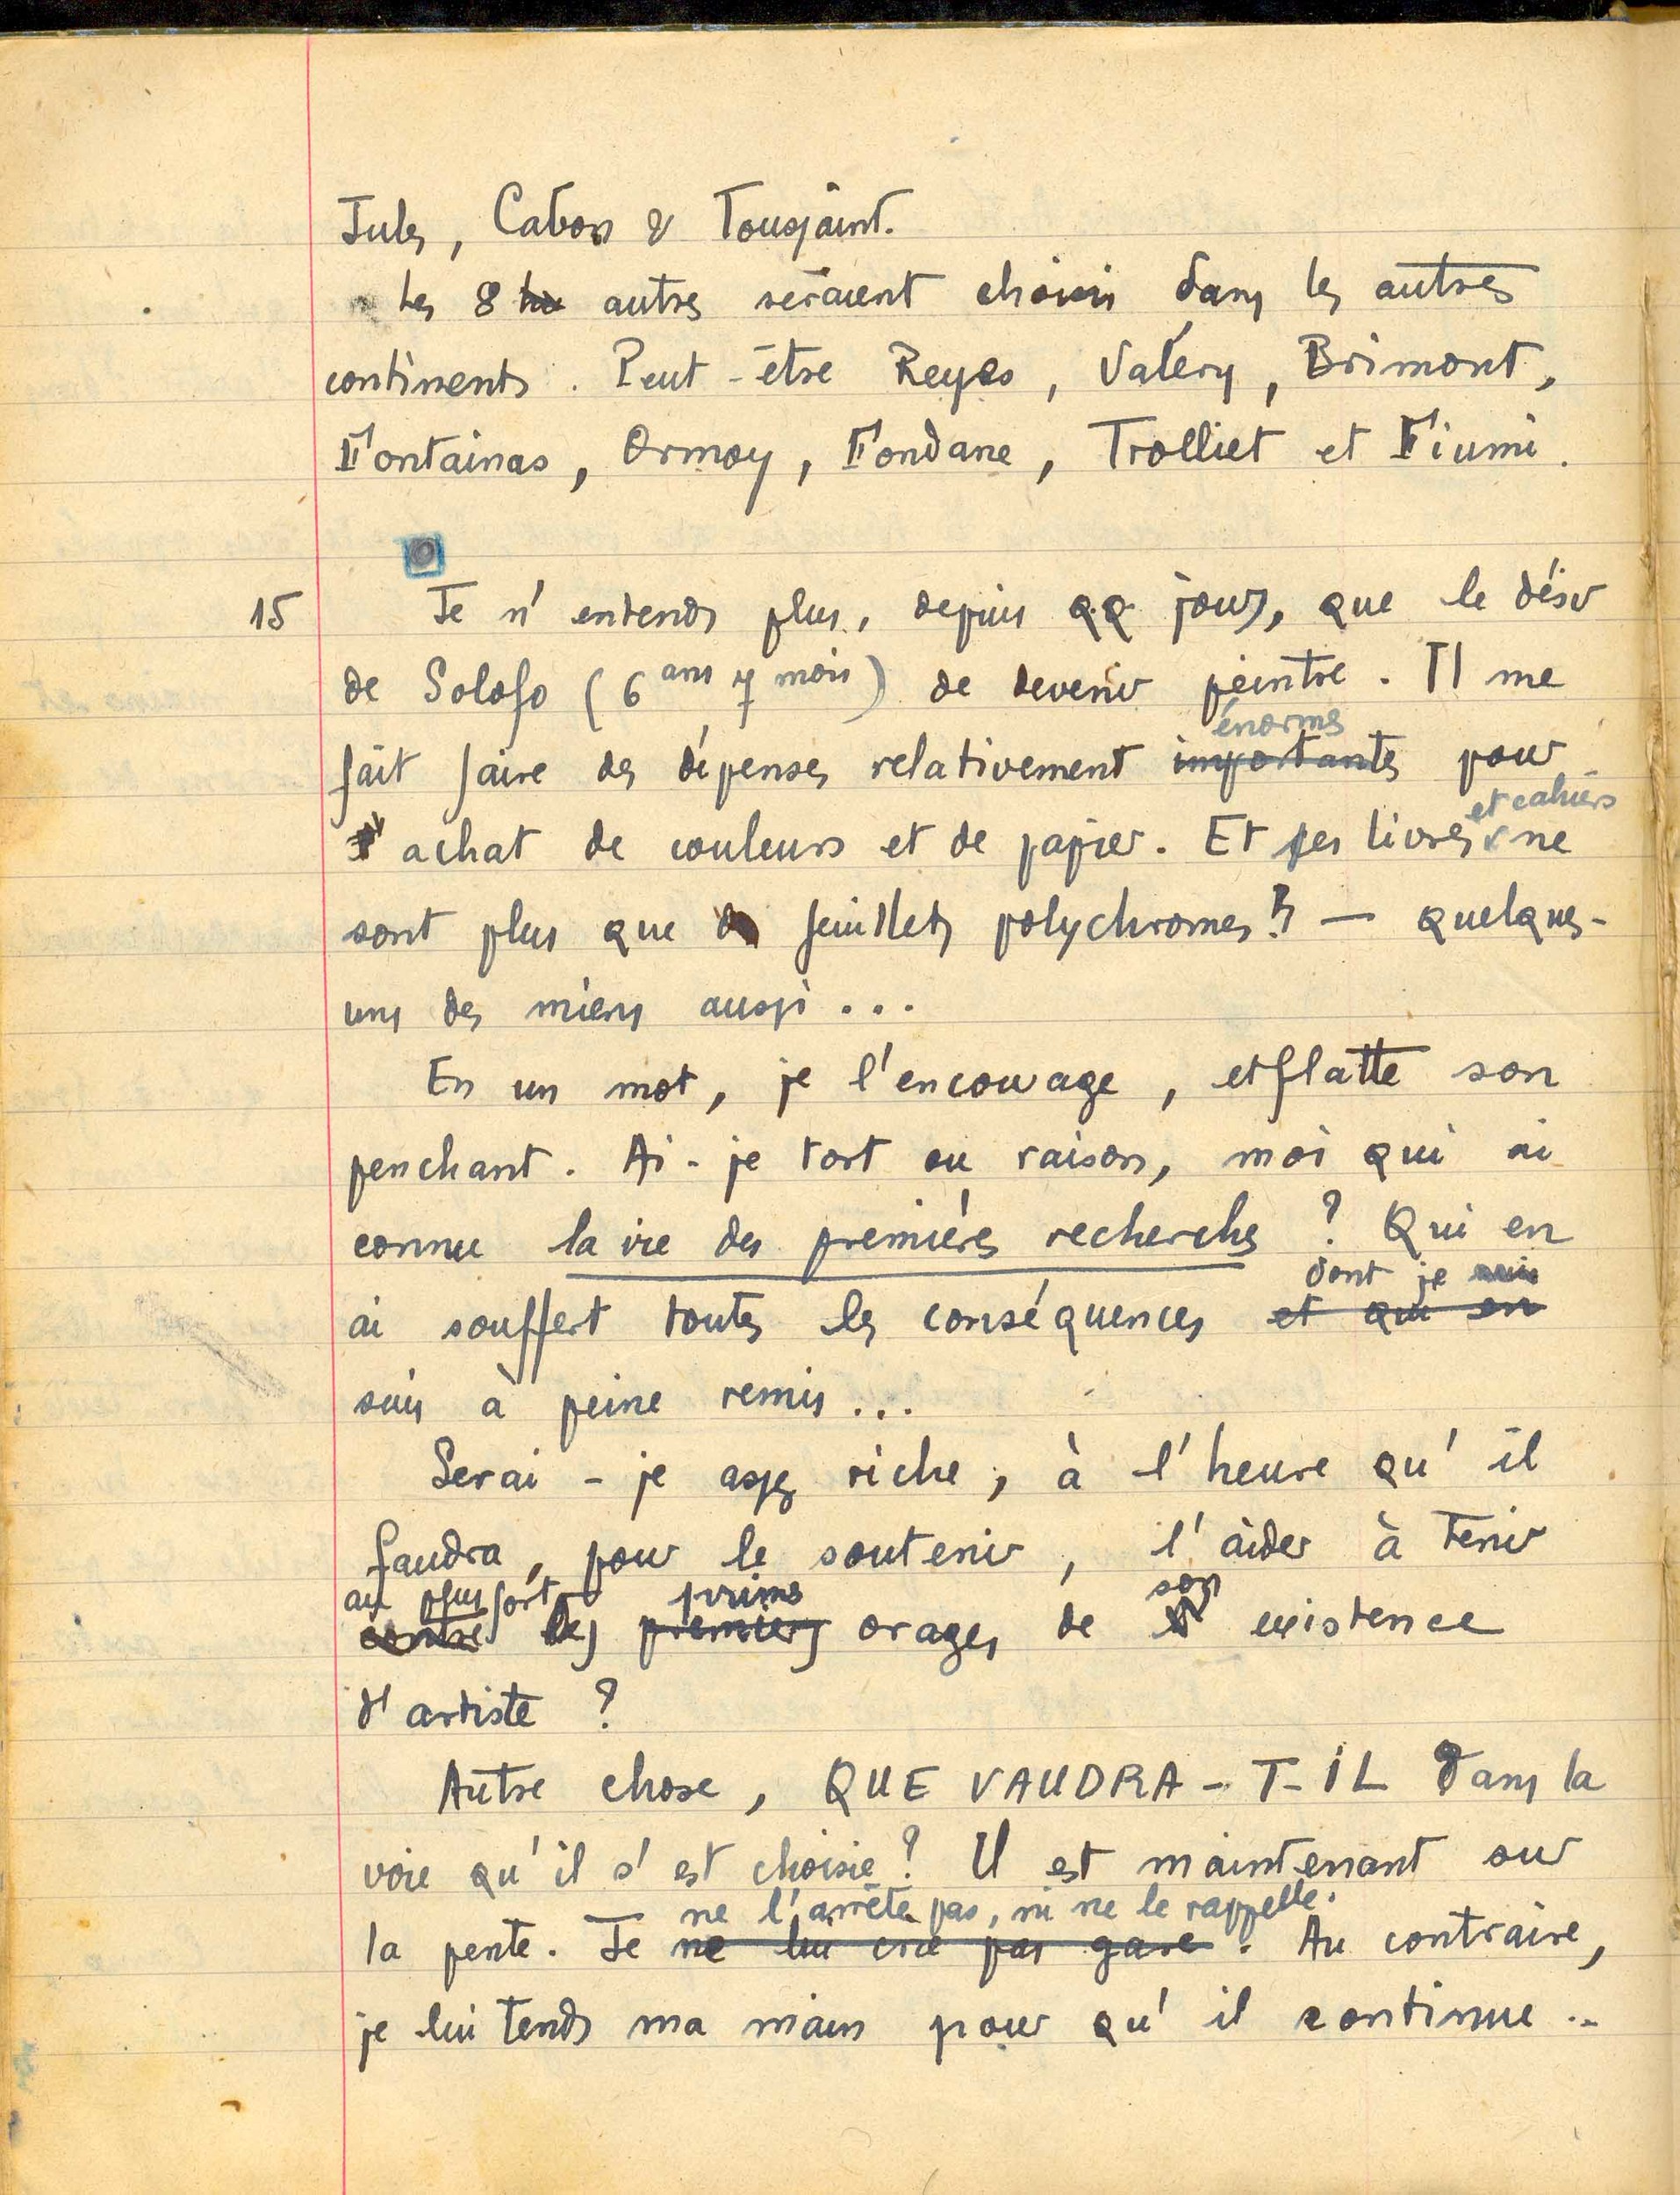 Jules, Cabon & Toussaint.
Les 8 autres seraient choisis dans les autres
continents. Peut-être Reyes, Valéry, Brimont,
Fontainas, Ormoy, Fondane, Trolliet et Fiumi.
15 Je n'entends plus, depuis qq jours, que le désir
de Solofo (6 ans 7 mois) de devenir peintre. Il me
énormes
fait faire des dépenses relativement importantes pour
et cahiers
achat de couleurs et de papier. Et ses livres ne
sont plus que feuillets polychromes!? — quelques-
uns des miens aussi...
En un mot, je l'encourage, et flatte son
penchant. Ai-je tort ou raison, moi qui ai
connu la vie des premières recherches ? Qui en
dont je suis
ai souffert toutes les conséquences et qui en
suis à peine remis...
Serai-je assez riche, à l'heure qu'il
faudra, pour le soutenir, l'aider à tenir
au plus fort primes son
contre des premiers orages de existence
d'artiste ?
Autre chose, QUE VAUDRA-T-IL dans la
voie qu'il s'est choisie? Il est maintenant sur
ne l'arrête pas, ni ne le rappelle.
la pente. Je ne lui crie pas gare. Au contraire,
je lui tends ma main pour qu'il continue..